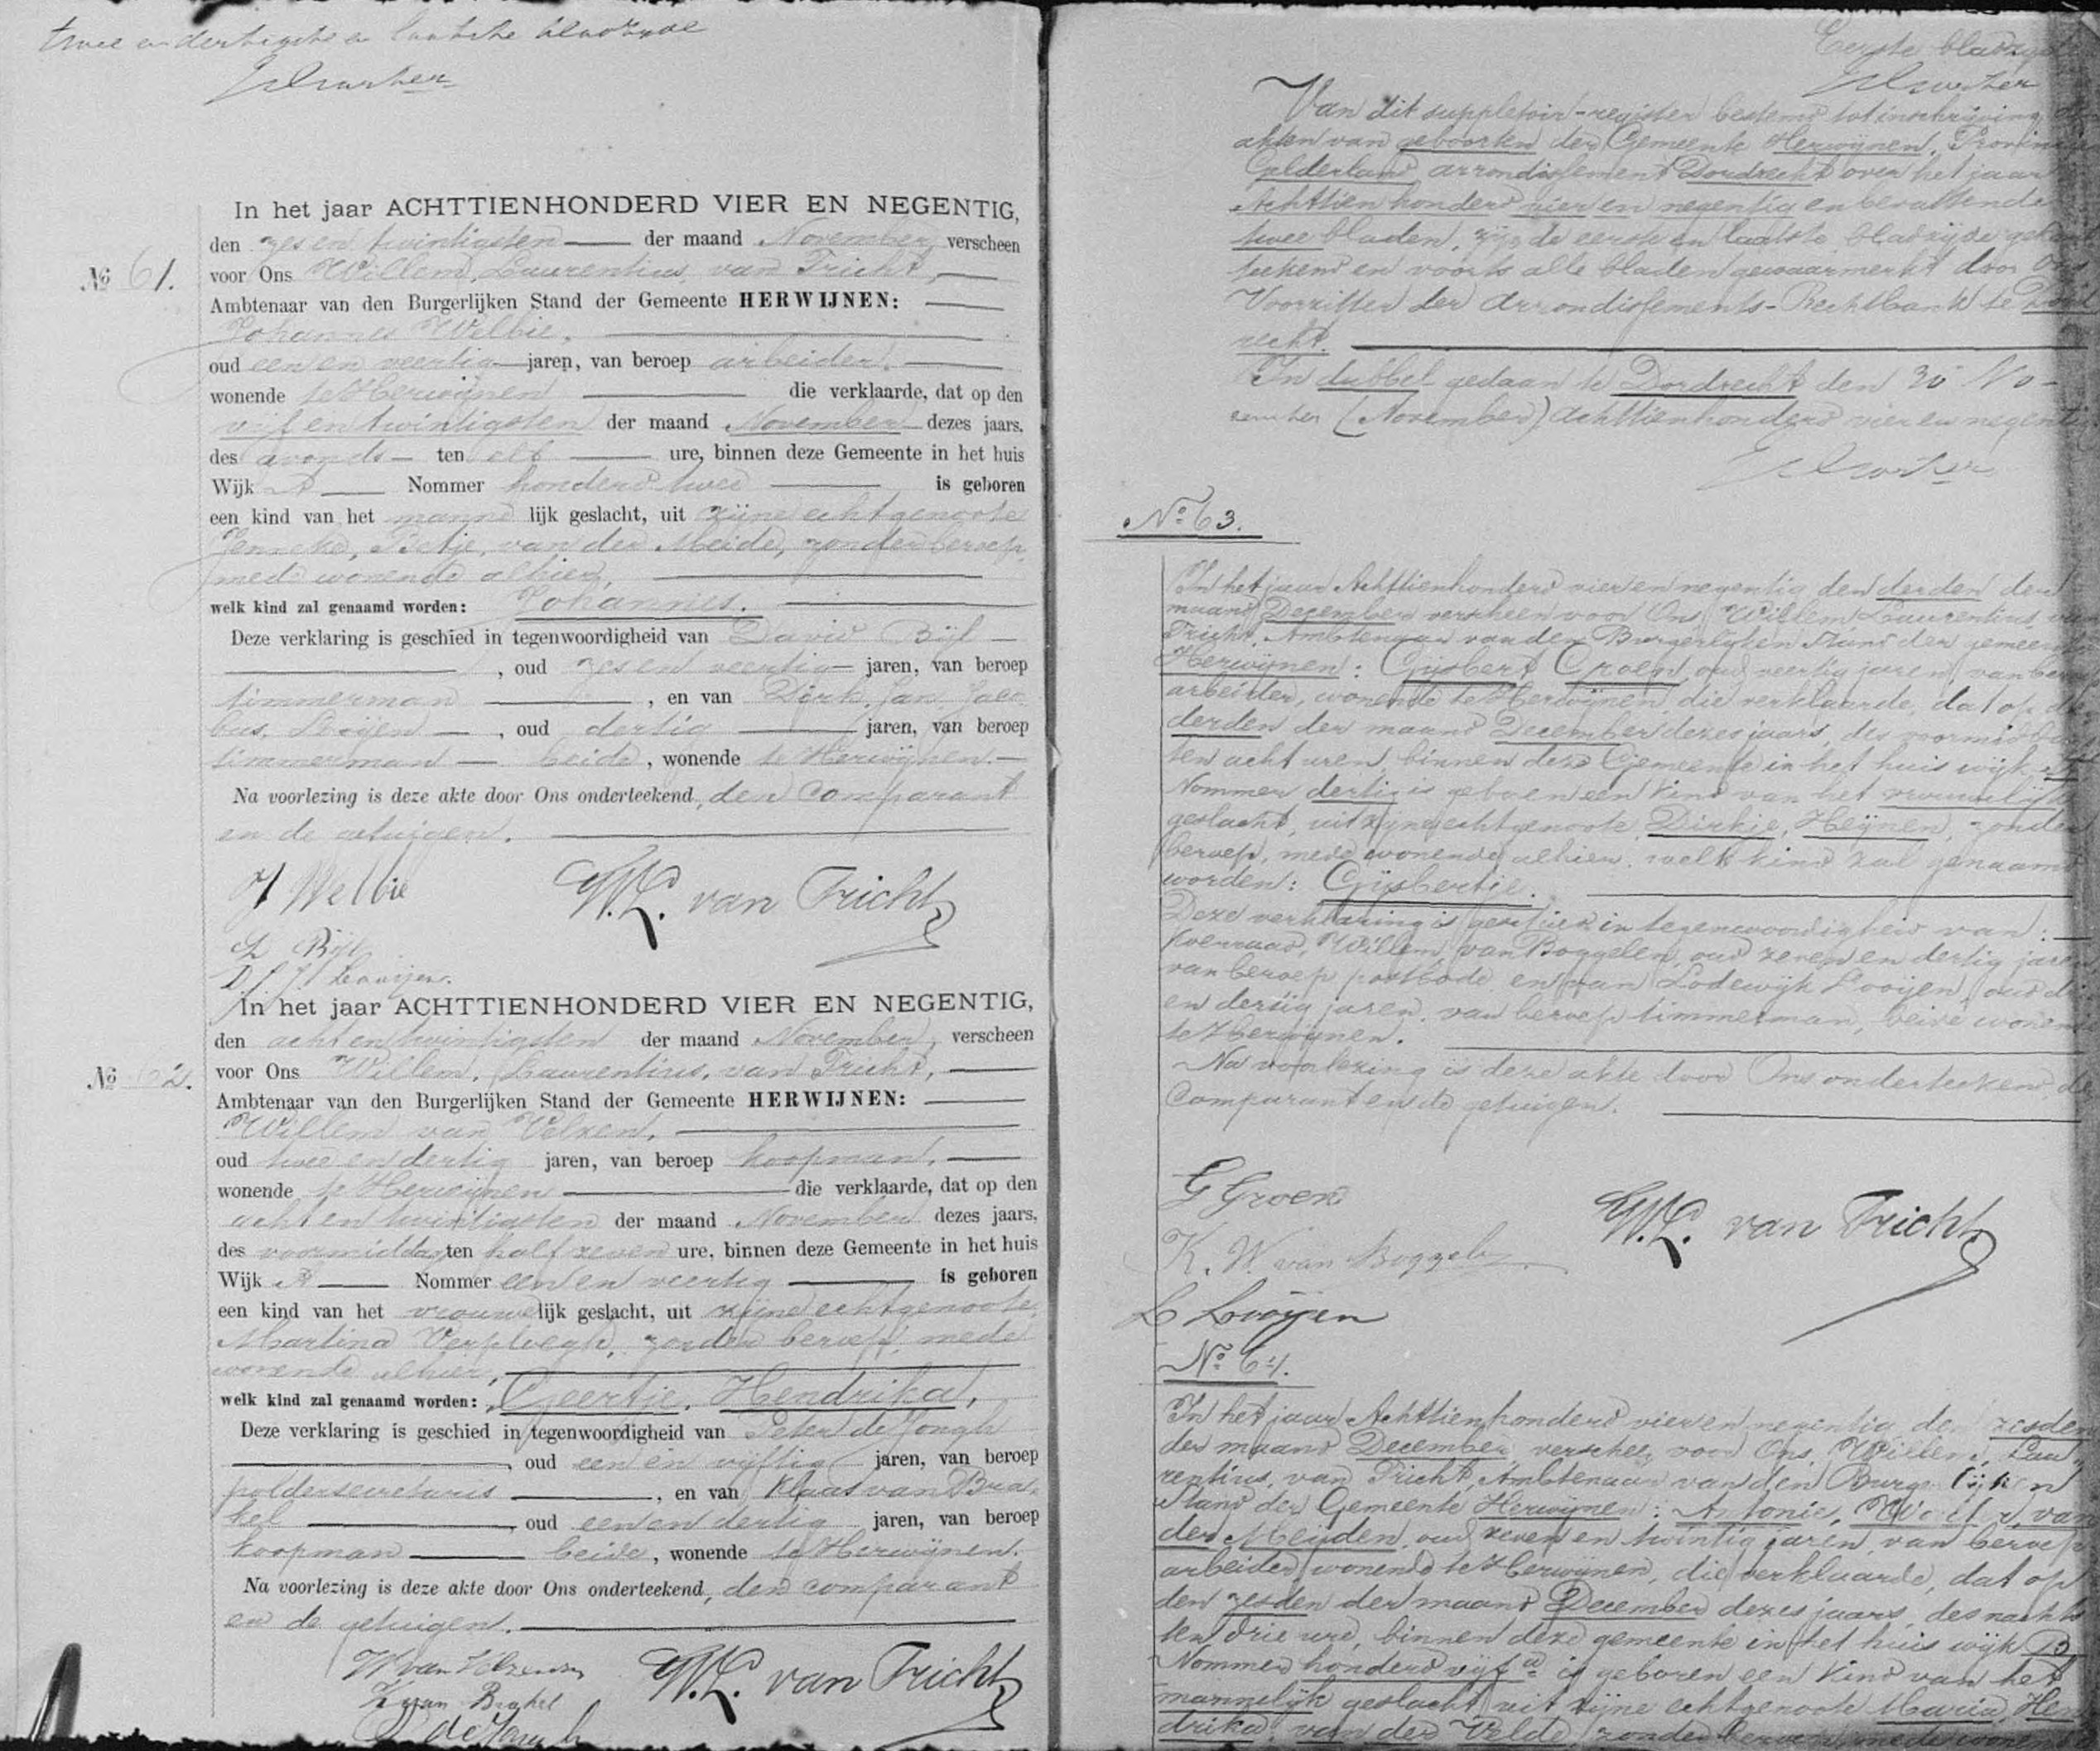 twee en dertigste en laatste bladzyde
In het jaar ACHTTIENHONDERD VIER EN NEGENTIG,
den zes en twintigsten der maand November, verscheen
No 61.
voor Ons Willem, Laurentius, van Tricht,
Ambtenaar van den Burgerlijken Stand der Gemeente HERWIJNEN:
Johannes Welbie,
oud een en veertig jaren, van beroep arbeider,
wonende te Herwijnen die verklaarde, dat op den
vijf en twintigsten der maand November dezes jaars,
des avonds ten elf ure, binnen deze Gemeente in het huis
Wijk A Nommer honderd twee is geboren
een kind van het manne lijk geslacht, uit zijne echtgenoote
Jenneke, Betje, van der Meide, zonder beroep,
mede wonende alhier,
welk kind zal genaamd worden: Johannes.
Deze verklaring is geschied in tegenwoordigheid van David Bijl
, oud zes en veertig jaren, van beroep
timmerman , en van Dirk, Jan, Jaco
bus, Looijen , oud dertig jaren, van beroep
timmerman beide, wonende te Herwijnen.
Na voorlezing is deze akte door Ons onderteekend, den comparant
en de getuigen.
J Welbie W.L. van Tricht
D Bijl
D. J. J. Looijen.
In het jaar ACHTTIENHONDERD VIER EN NEGENTIG,
den acht en twintigsten der maand November, verscheen
No 62.
voor Ons Willem, Laurentius, van Tricht,
Ambtenaar van den Burgerlijken Stand der Gemeente HERWIJNEN:
Willem van Velzen,
oud twee en dertig jaren, van beroep koopman,
wonende te Herwijnen die verklaarde, dat op den
acht en twintigsten der maand November dezes jaars,
des voormiddag ten half zeven ure, binnen deze Gemeente in het huis
Wijk A Nommer een en veertig is geboren
een kind van het vrouwe lijk geslacht, uit zijne echtgenoote,
Martina Verploegh, zonder beroep, mede
wonende alhier,
welk kind zal genaamd worden: Geertje, Hendrika,
Deze verklaring is geschied in tegenwoordigheid van Peter de Jongh
, oud een en vijftig jaren, van beroep
poldersecretaris , en van Klaas van Bra-
kel , oud een en dertig jaren, van beroep
koopman beide, wonende te Herwijnen.
Na voorlezing is deze akte door Ons onderteekend, den comparant
en de getuigen.
W van Velzen W.L. van Tricht
K van Brakel
P de Jongh
Eerste bladzyde
Van dit suppletoir-register bestemd tot inschrijving der
akten van geboorten der Gemeente Herwijnen, Provincie
Gelderland arrondissement Dordrecht over het jaar
Achttien honderd vier en negentig en bevattende
twee bladen, zijn de eerste en laatste bladzijde
teekend en voorts alle bladen gewaarmerkt door Ons
Voorzitter der Arrondissements-Rechtbank te Dord
recht.
In dubbel gedaan te Dordrecht den 30 No-
vember (November) achttienhonderd vier en negentig
No 63.
In het jaar Achttienhonderd vier en negentig den derden der
maand December verscheen voor Ons Willem Laurentius van
Tricht, Ambtenaar van den Burgerlijken Stand der gemeente
Herwijnen: Gijsbert Groen, oud veertig jaren, van beroep
arbeider, wonende te Herwijnen, die verklaarde, dat op den
derden der maand December dezes jaars, des voormiddags
ten acht uren, binnen deze Gemeente in het huis wijk
Nommer dertig is geboren een kind van het vrouwelijk
geslacht, uit zijne echtgenoote, Dirkje, Heijnen, zonder
beroep, mede wonende alhier, welk kind zal genaamd
worden: Gijsbertje.
Deze verklaring is geschied in tegenwoordigheid van:
Koenraad, Willem, van Boggelen, oud zeven en dertig jaren
van beroep postbode, en van Lodewijk Looijen, oud
en dertig jaren, van beroep timmerman, beide wonende
te Herwijnen.
Na voorlezing is deze akte door Ons onderteekend, de
Comparant en de getuigen.
G Groen
K. W. van Boggelen W.L. van Tricht
L Looijen
No 64.
In het jaar Achttienhonderd vier en negentig den zesden
der maand December, verscheen voor Ons, Willem, Lau-
rentius, van Tricht, Ambtenaar van den Burgerlijken
Stand der Gemeente Herwijnen: Antonie, Wouter, van
der Meijden, oud zeven en twintig jaren, van beroep
arbeider wonende te Herwijnen, die verklaarde, dat op
den zesden der maand December dezes jaars, des nachts
ten drie ure, binnen deze gemeente in het huis wijk B
Nommer honderd vijf a is geboren een kind van het
mannelijk geslacht uit zijne echtgenoote Maria, Hen
drika, van der Velde, zonder beroep, mede wonende